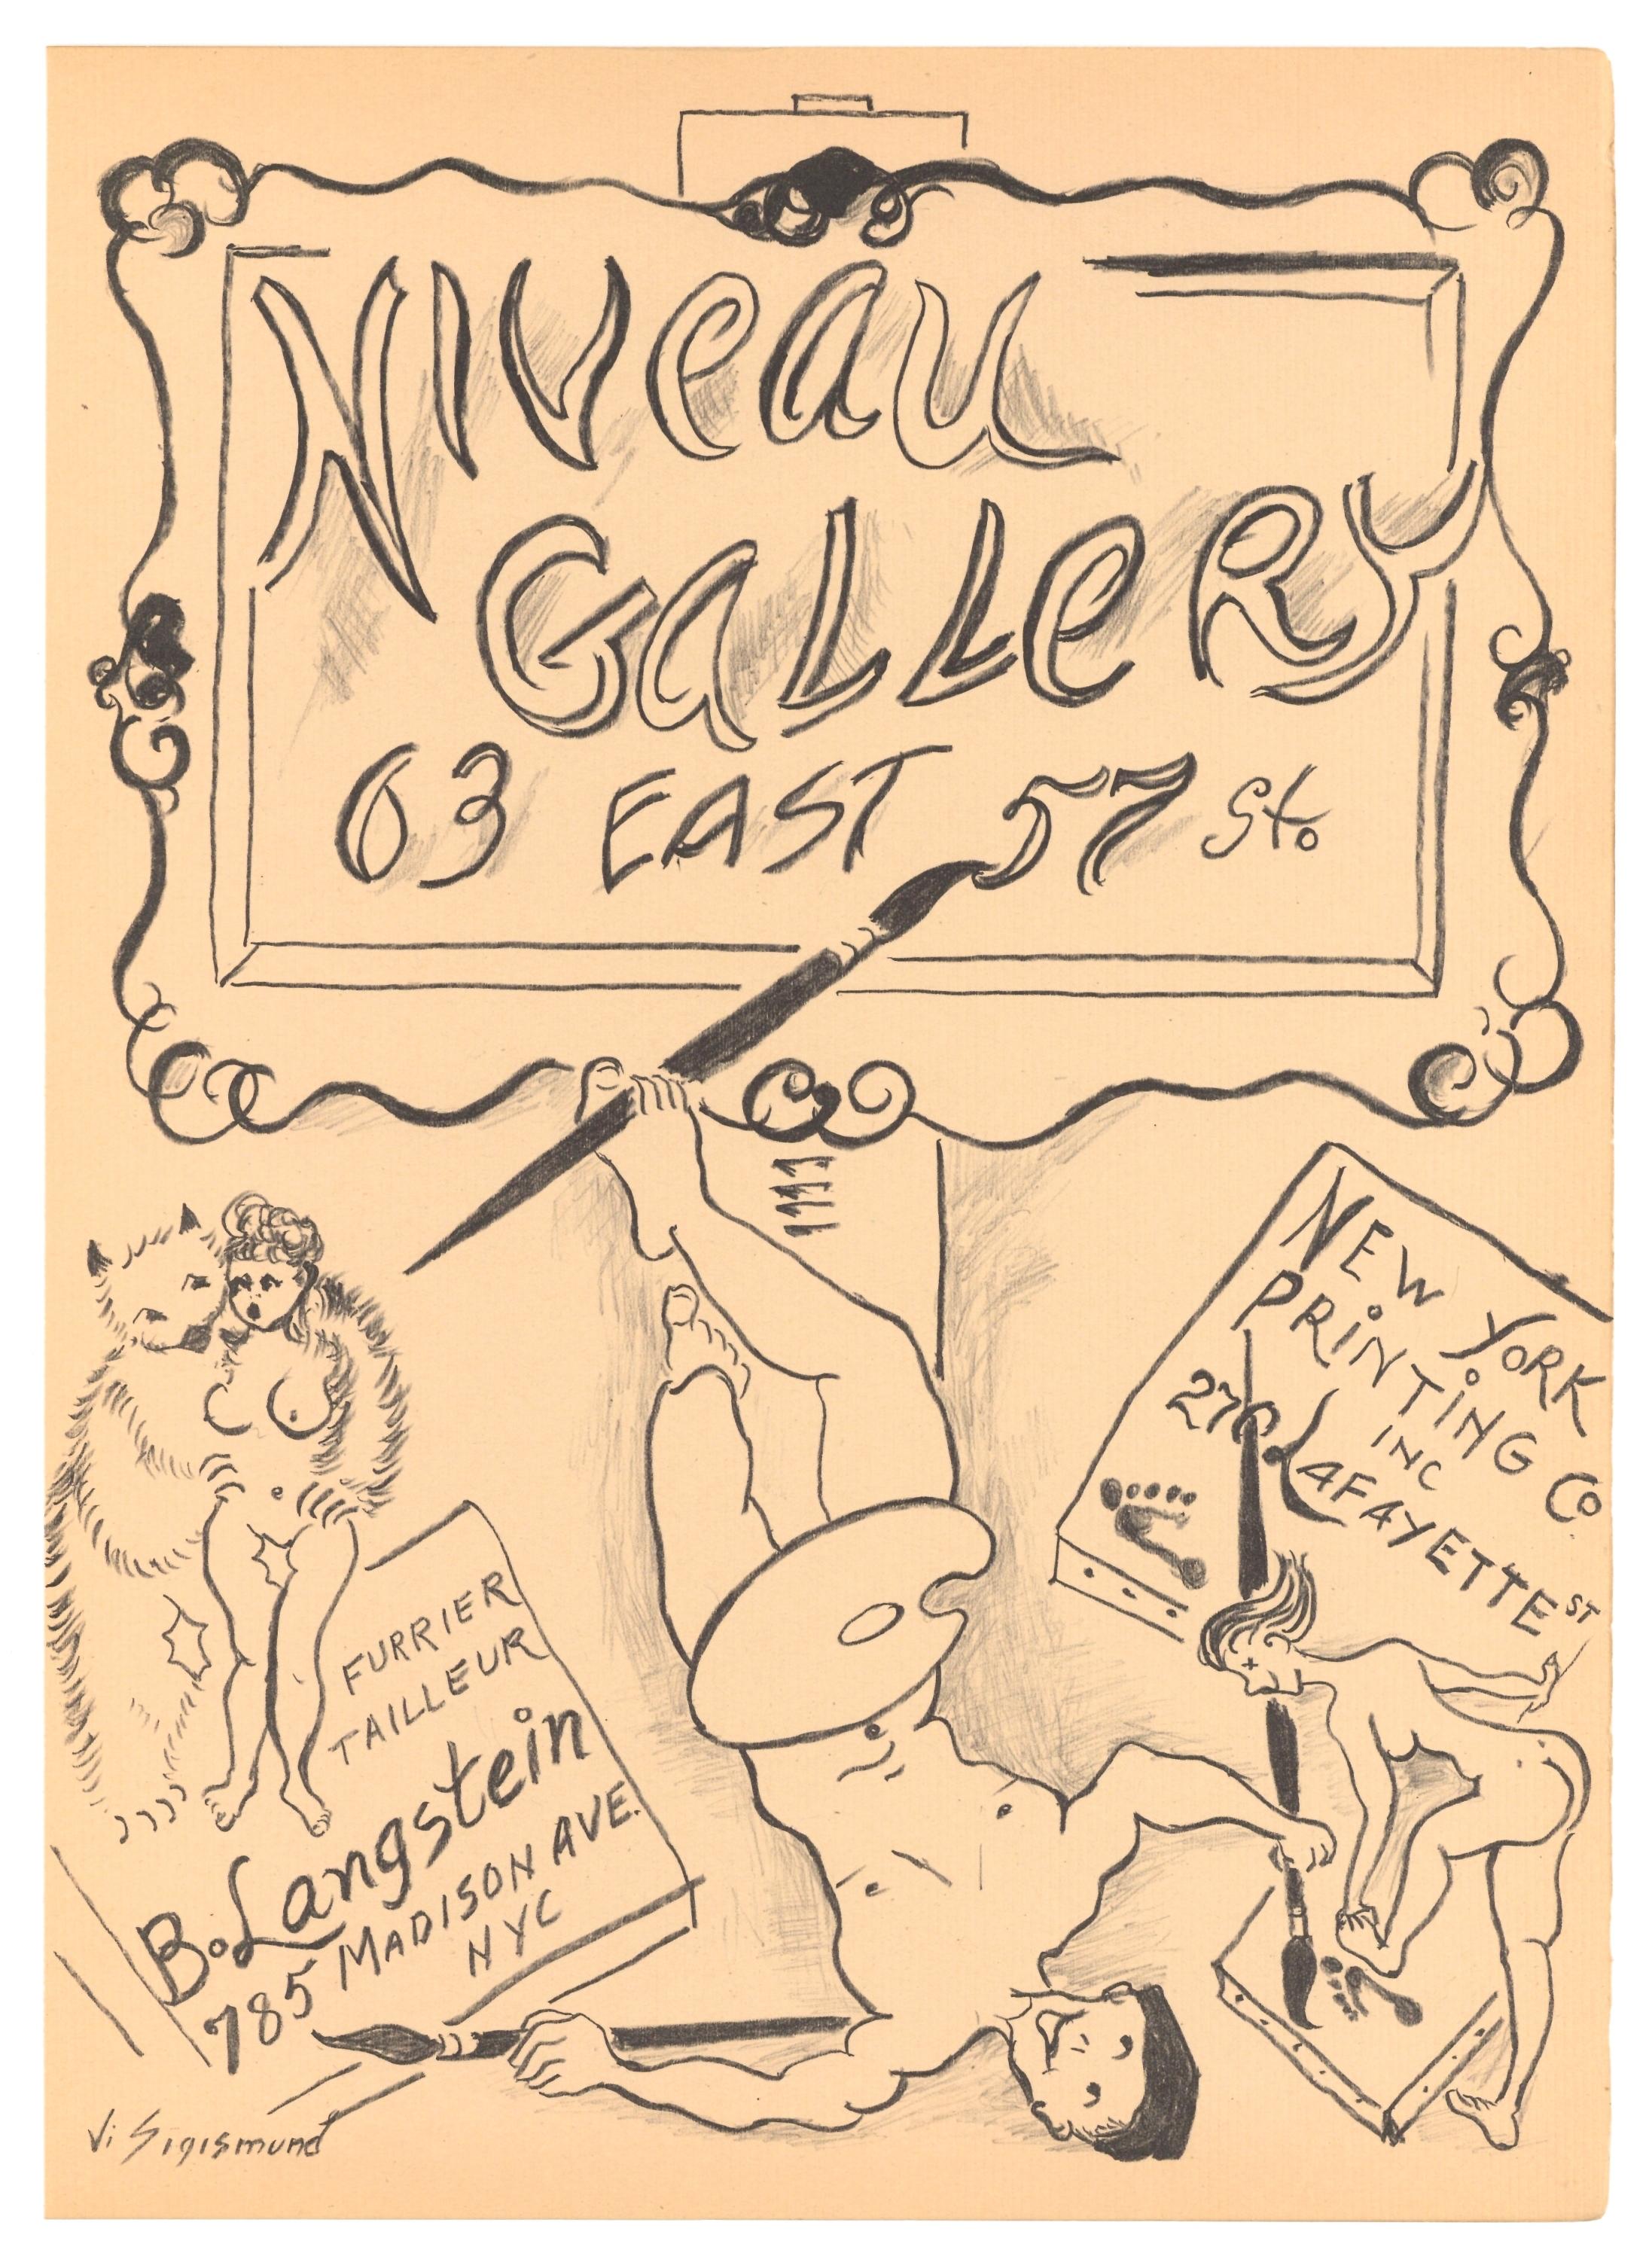 NIVeaU
GaLLeRY
63 EAST 57 St.
NEW YORK
PRiNTiNG CO.
INC
270 LAFAYETTE ST
FURRIER
TAILLEUR
B. Langstein
785 MADISON AVE.
NYC
Vi Sigismund